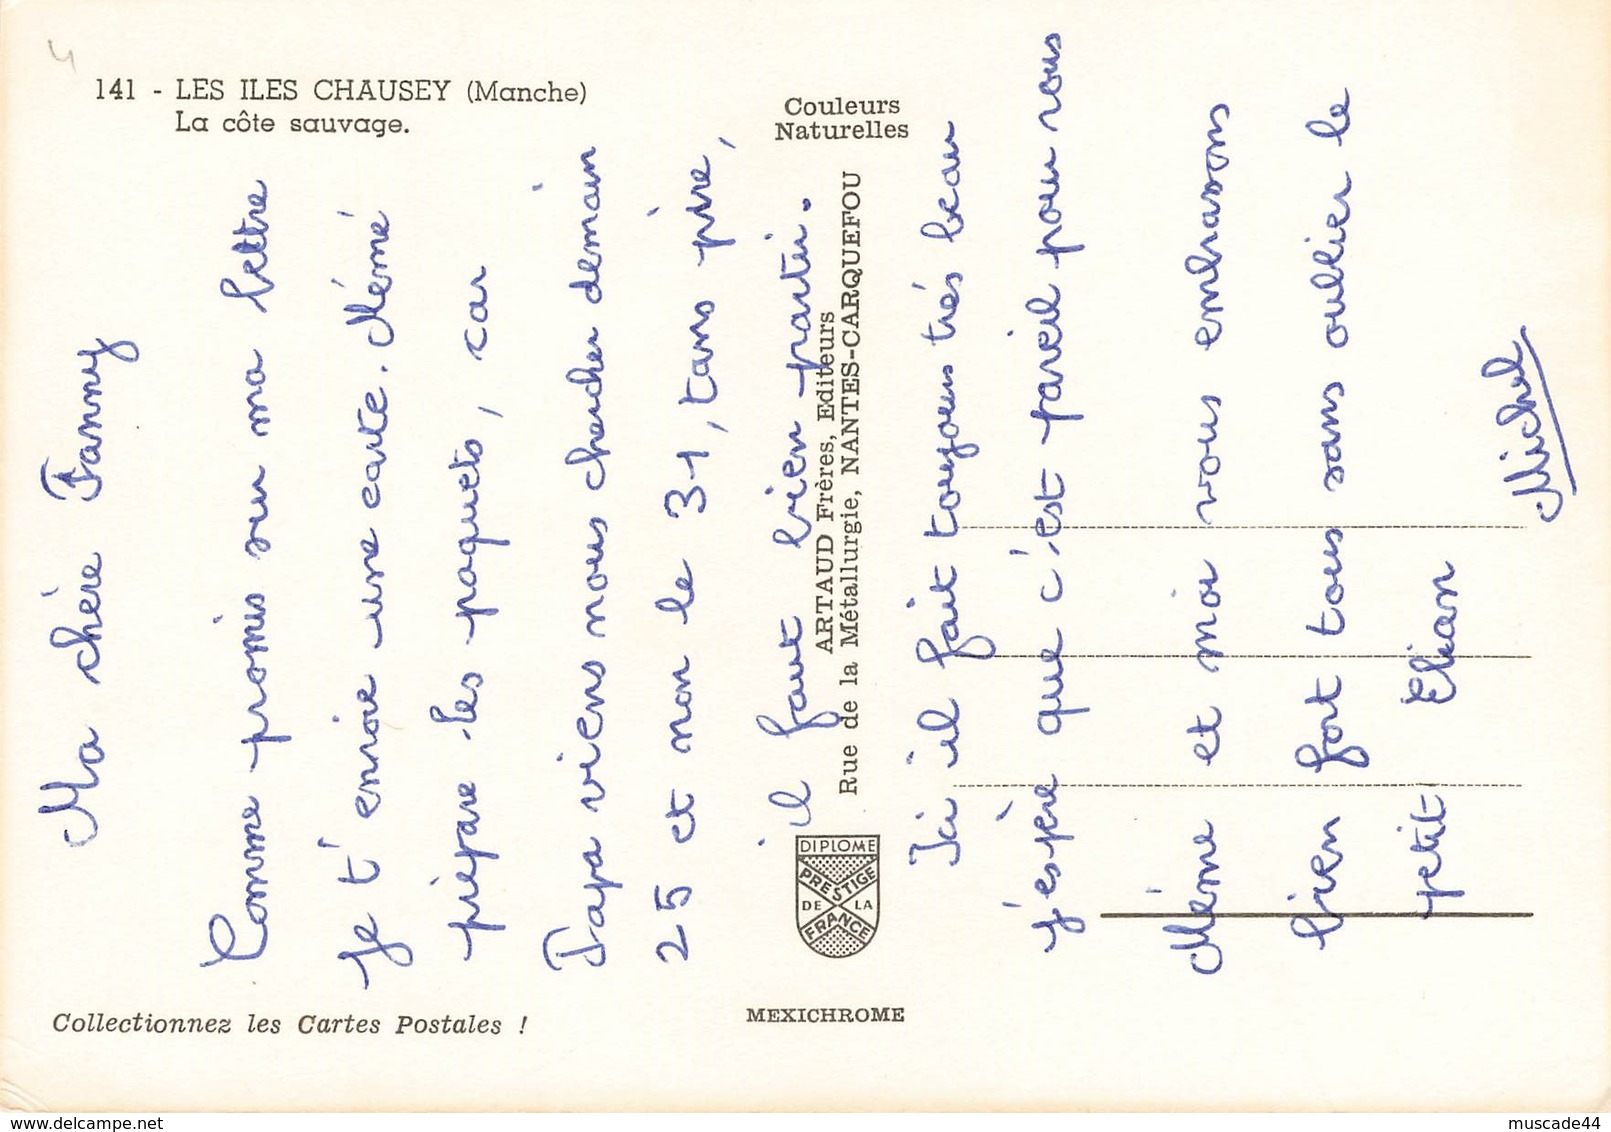 141 - LES ILES CHAUSEY (Manche)
La côte sauvage.
Couleurs
Naturelles
ARTAUD Frères, Editeurs
Rue de la Métallurgie, NANTES-CARQUEFOU
DIPLOME
PRESTIGE
DE LA
FRANCE
MEXICHROME
Collectionnez les Cartes Postales !
Ma chère Fanny
Comme promis sur ma lettre
je t'envoie une carte. Mémé
prépare les paquets, car
Papa viens nous chercher demain
25 et non le 31, tans pire,
il faut bien partir.
Ici il fait toujours très beau
j'espère que c'est pareil pour vous
Mémé et moi vous embrassons
bien fort tous sans oublier le
petit Elian
Michel
delcampe.net
muscade44